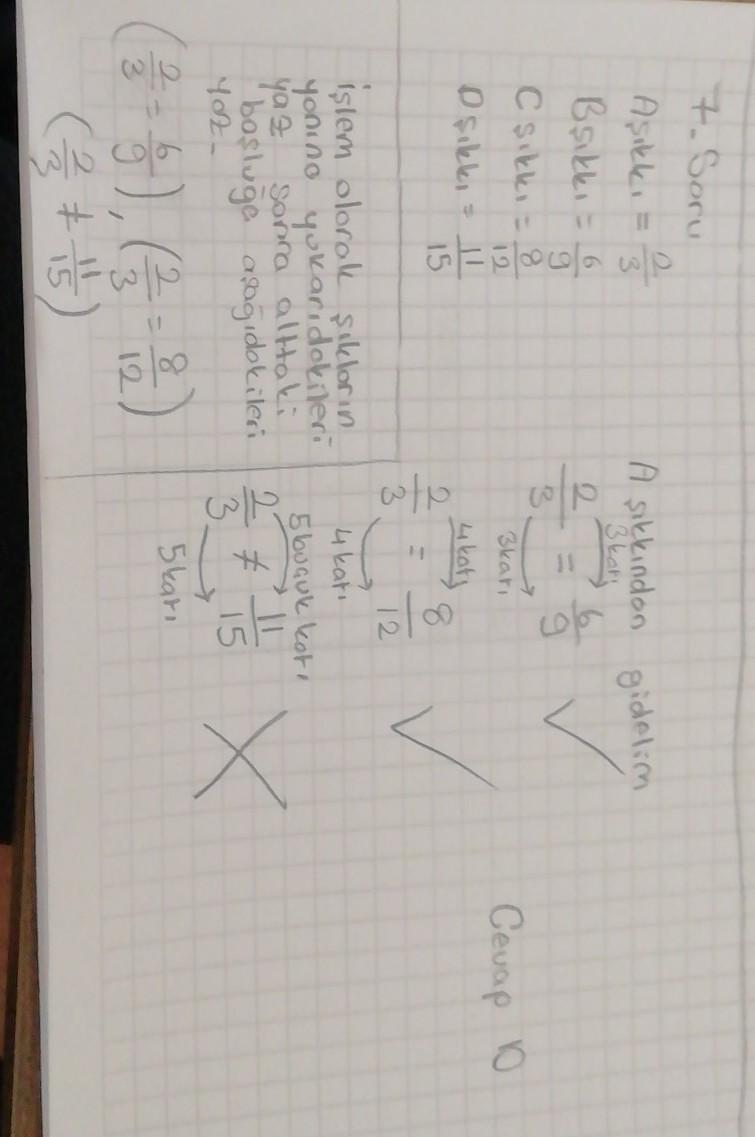 7. Soru
A şıkkı = 2/3
B şıkkı = 6/9
C şıkkı = 8/12
D şıkkı = 11/15
İşlem olarak şıkların
yanına yukarıdakileri
yaz sonra alttaki
boşluğa aşağıdakileri
yaz.
(2/3 = 6/9), (2/3 = 8/12)
(2/3 ≠ 11/15)
A şıkkından gidelim
3katı
2/3 = 6/9 ✓
3katı
4katı
2/3 = 8/12 ✓
4katı
5buçuk katı
2/3 ≠ 11/15 ✗
5katı
Cevap D